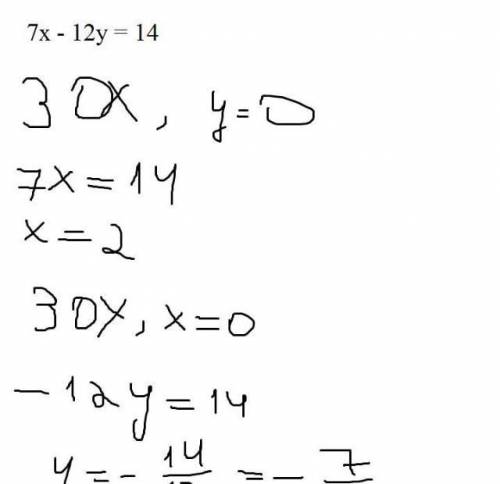 7x - 12y = 14
З OX, y=0
7x=14
x=2
З OY, x=0
-12y=14
y=-14/ =-7/